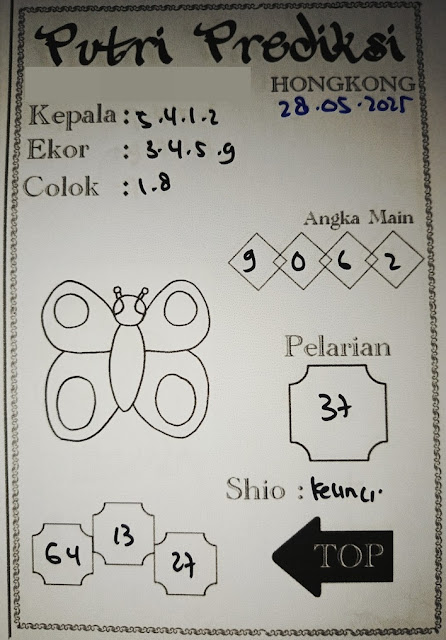 Putri Prediksi
HONGKONG
28.05.2025
Kepala : 5.4.1.2
Ekor : 3.4.5.9
Colok : 1.8
Angka Main
9 0 6 2
Pelarian
37
Shio : Kelinci.
64 13 27
TOP